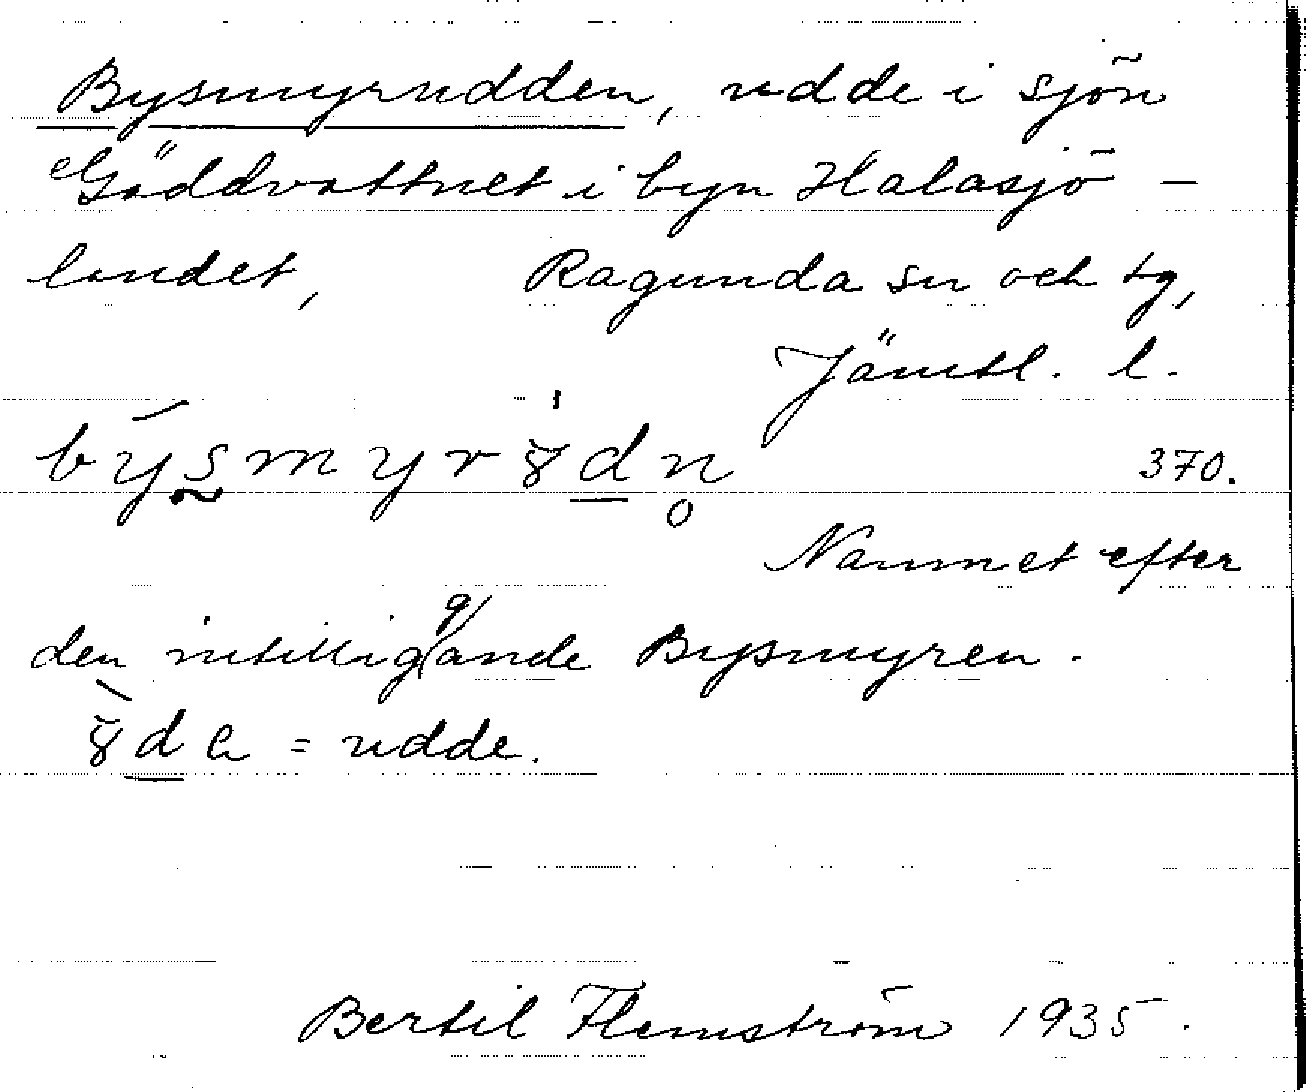 Bysmyrudden, udde i sjön
Gäddvattnet i byn Halasjö –
landet, Ragunda sn och tg,
Jämtl. l.
370.
Namnet efter
den intilligg/ande Bysmyren.
= udde.
Bertil Flemström 1935.